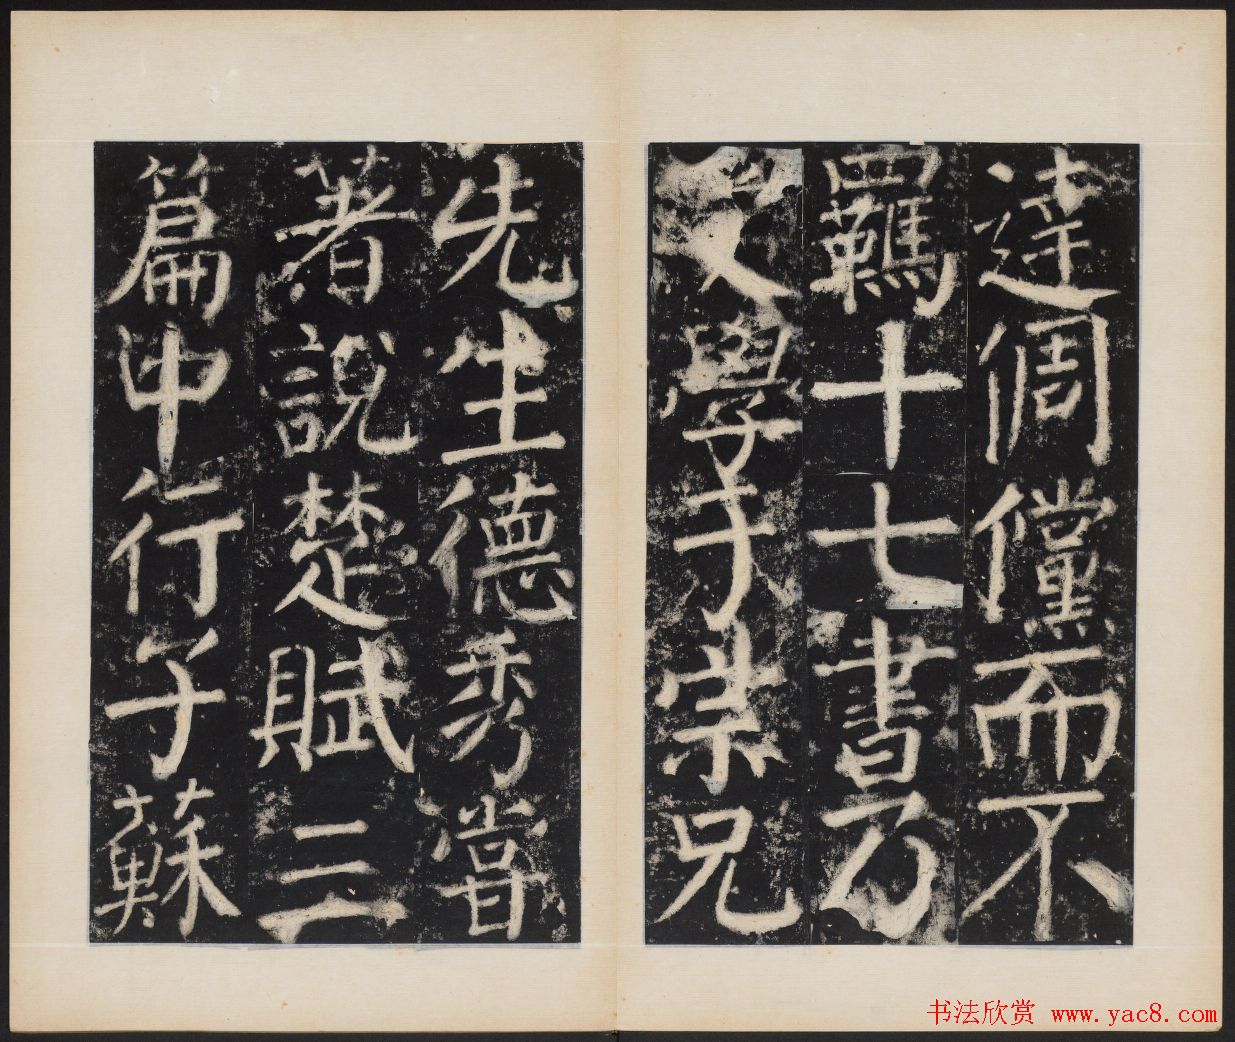 達倜儻而不
羈十七書乃
文學于崇兄
先生德秀嘗
著說楚賦三
篇中行子蘇
书法欣赏 www.yac8.com